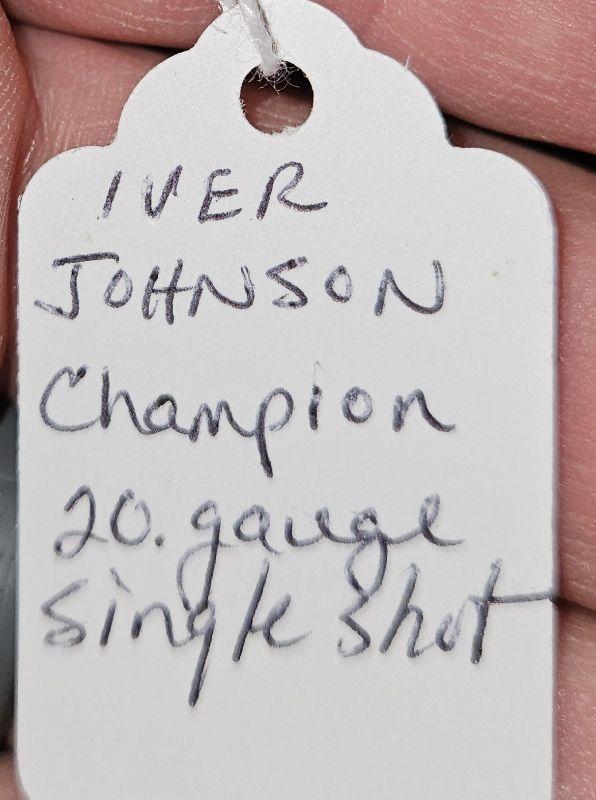 IVER
JOHNSON
Champion
20. gauge
single shot